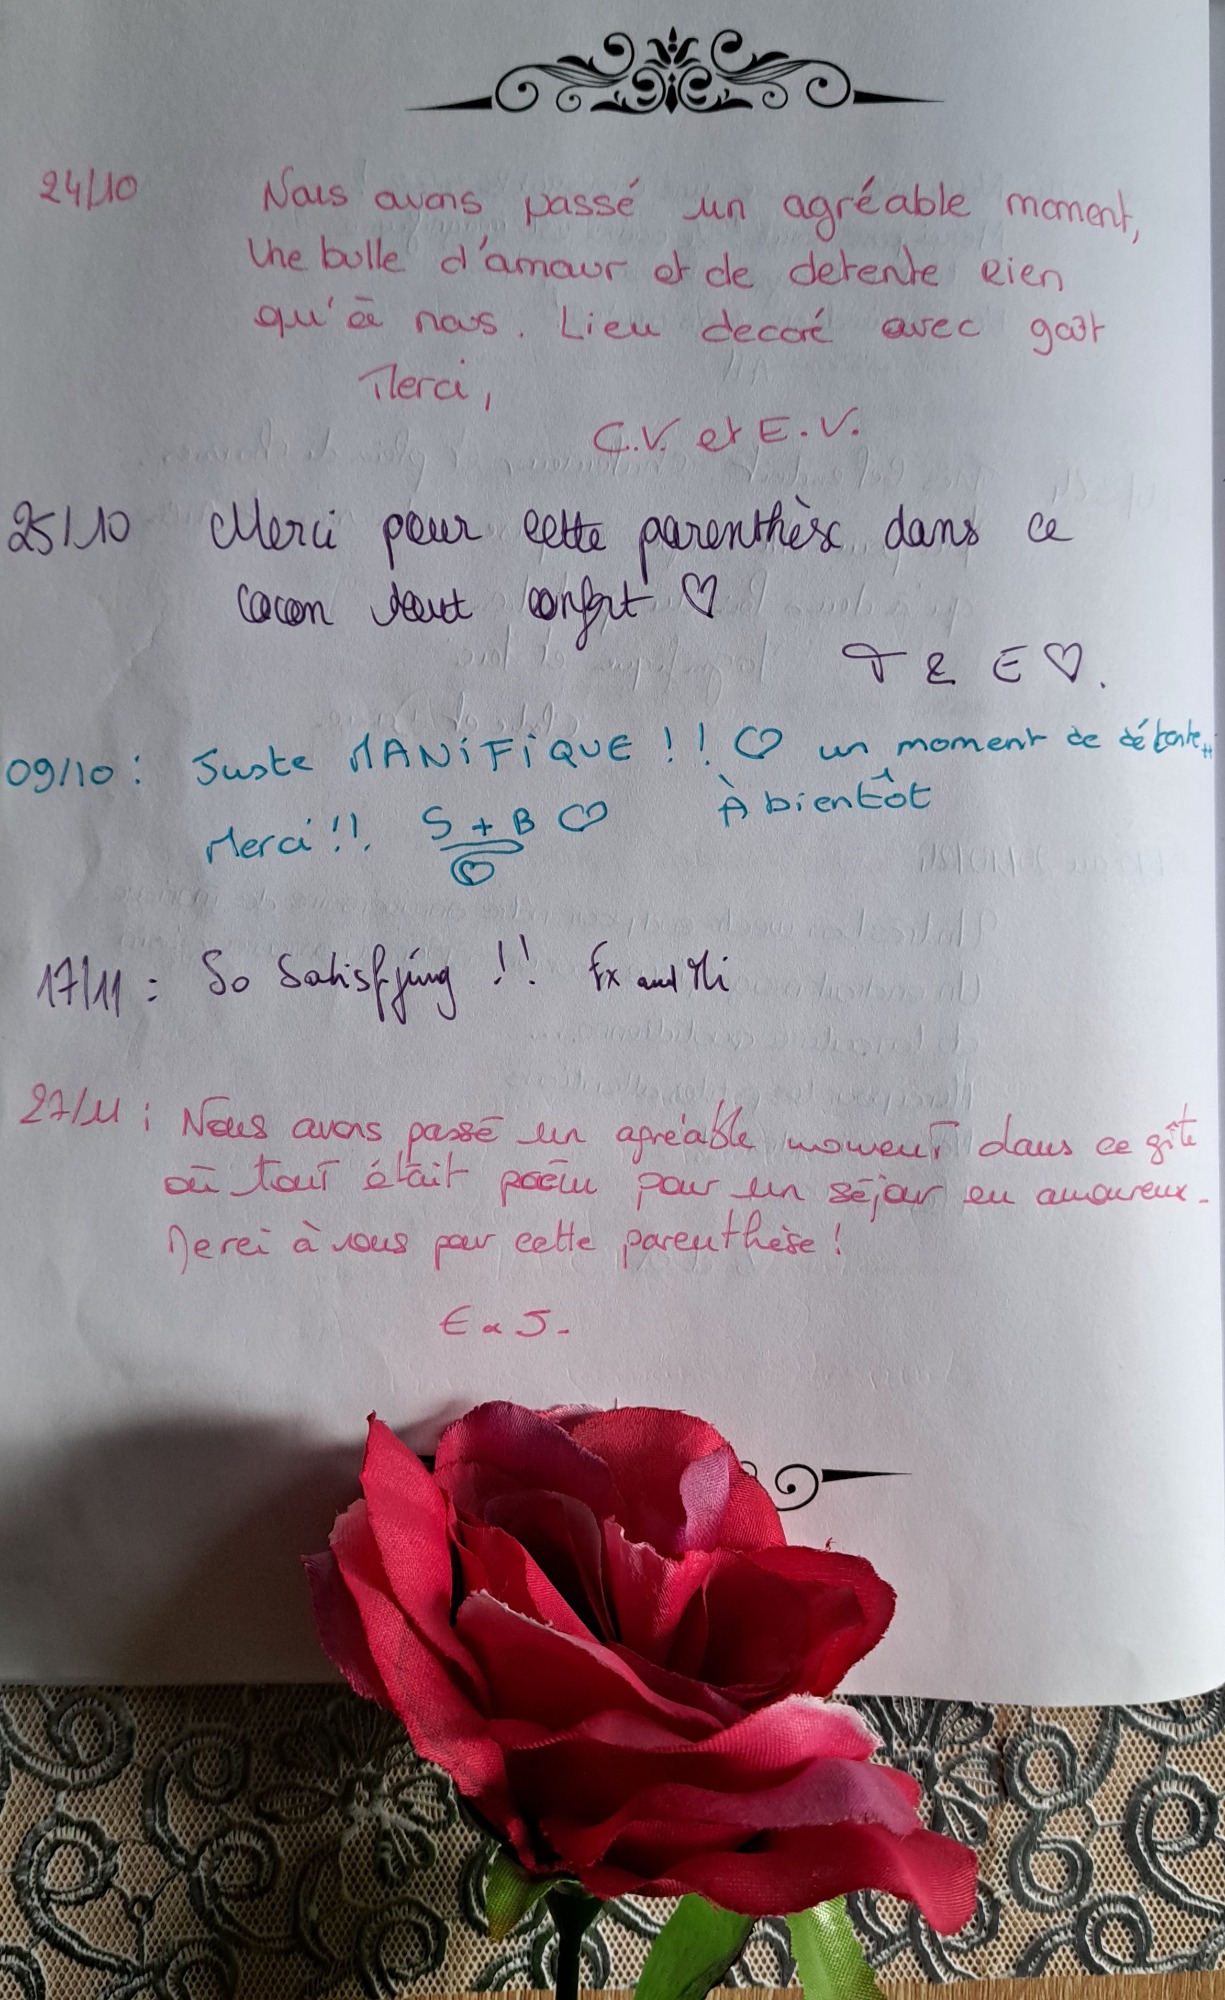 24/10 Nous avons passé un agréable moment,
Une bulle d'amour et de detente rien
qu'à nous. Lieu decoré avec goût
Merci,
C.V. et E.V.
25/10 Merci pour cette parenthèse dans ce
cocon tout confort ♡
T & E ♡.
09/10 : Juste MANiFiQUE !! ♡ un moment de détente
Merci !! S + B ♡ À bientôt
17/11 : So Satisfying !! Ex and Mi
27/11 : Nous avons passé un agréable moment dans ce gîte
où tout était pour un séjour en amoureux.
Merci à vous pour cette parenthèse !
E & J.